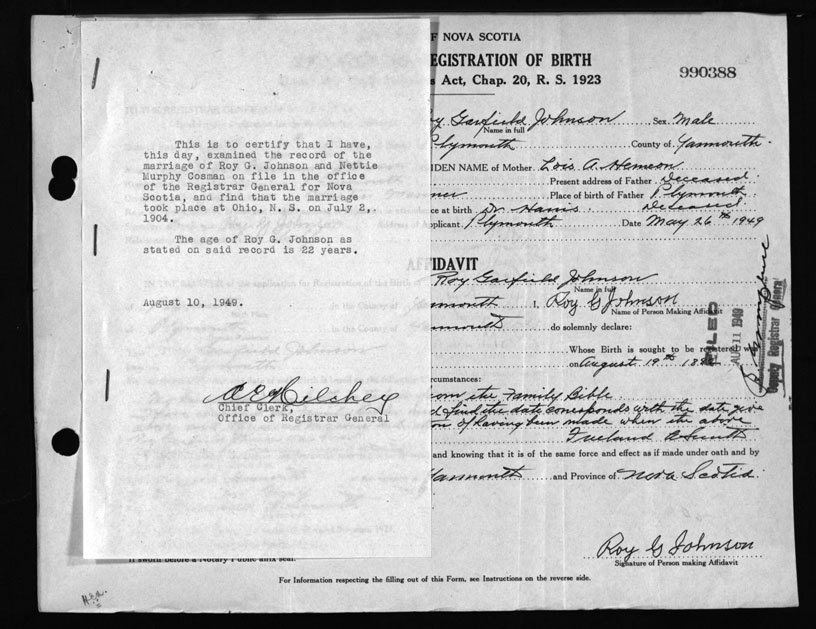 This is to certify that I have,
this day, examined the record of the
marriage of Roy G. Johnson and Nettie
Murphy Cosman on file in the office
of the Registrar General for Nova
Scotia, and find that the marriage
took place at Ohio, N. S. on July 2,
1904.
The age of Roy G. Johnson as
stated on said record is 22 years.
August 10, 1949.
Chief Clerk,
Office of Registrar General
F NOVA SCOTIA
EGISTRATION OF BIRTH
s Act, Chap. 20, R. S. 1923
990388
y Garfield Johnson Sex Male
Name in full
Plymouth County of Yarmouth
IDEN NAME of Mother Lois A.
Present address of Father Deceased
ner Place of birth of Father Plymouth
ce at birth Dr Harris Deceased
plicant Plymouth Date May 26th 1949
AFFIDAVIT
Roy Garfield Johnson
Name in full
mouth I, Roy G Johnson
Name of Person Making Affidavit
mouth do solemnly declare:
Whose Birth is sought to be registered was
on August 19th
rcumstances:
om the Family Bible.
d find the date corresponds with the date give
ion of having been made when the above
and knowing that it is of the same force and effect as if made under oath and by
Yarmouth and Province of Nova Scotia
Roy G Johnson
Signature of Person making Affidavit
If sworn before a Notary Public affix seal.
For Information respecting the filling out of this Form, see Instructions on the reverse side.
FILED
AUG 11 1949
Deputy Registrar General